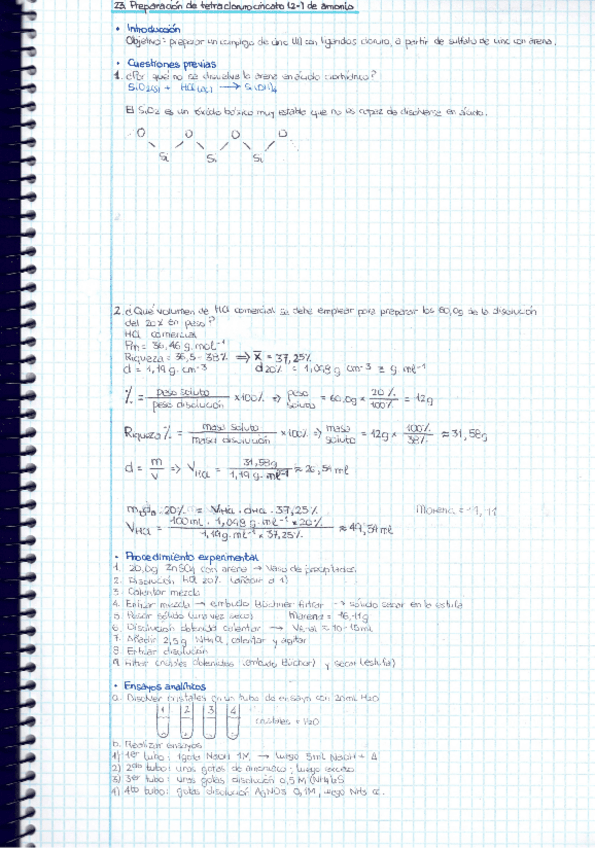 23. Preparación de tetraclorurocincato (2-) de amonio
• Introducción
Objetivo: preparar un complejo de cinc (II) con ligandos cloruro, a partir de sulfato de cinc con arena.
• Cuestiones previas
1. ¿Por qué no se disuelve la arena en ácido clorhídrico?
SiO2(s) + HCl(ac) →
El SiO2 es un óxido básico muy estable que no es capaz de disolverse en ácido.
O O O O
Si Si Si
2. ¿Qué volumen de HCl comercial se debe emplear para preparar los 60,0g de la disolución
del 20% en peso?
HCl comercial
Pm = 36,46 g·mol-1
Riqueza = 36,5 - 38% ⇒ x̄ = 37,25%
d = 1,19 g·cm-3 d20% = 1,098 g cm-3 = g ml-1
% = peso soluto / peso disolución x100% ⇒ peso soluto = 60,0g x 20% / 100% = 12g
Riqueza % = masa soluto / masa disolución x100% ⇒ masa soluto = 12g x 100% / 38% ≈ 31,58g
d = m / v ⇒ VHCl = 31,58g / 1,19 g·ml-1 ≈ 26,54 ml
20% = VHCl · dHCl · 37,25%
VHCl = 100ml · 1,098 g·ml-1 · 20% / 1,19g·ml-1 · 37,25% ≈ 49,54 ml
• Procedimiento experimental
1. 20,0g ZnSO4 con arena → vaso de precipitados
2. Disolución HCl 20% (añadir a 1)
3. Calentar mezcla
4. Enfriar mezcla → embudo Büchner filtrar → sólido secar en la estufa
5. Pesar sólido (una vez seco) marena = 16,11g
6. Disolución obtenida calentar → ≈ 10-15mL
7. Añadir 2,5g NH4Cl, calentar y agitar
8. Enfriar disolución
9. Filtrar cristales obtenidos (embudo Büchner) y secar (estufa)
• Ensayos analíticos
a. Disolver cristales en un tubo de ensayo con 20mL H2O
1 2 3 4
cristales + H2O
b. Realizar ensayos
1) 1er tubo: 1 gota NaOH 1M → luego 5ml NaOH + Δ
2) 2do tubo: unas gotas de amoniaco; luego exceso
3) 3er tubo: unas gotas disolución 0,5 M (NH4)2S
4) 4to tubo: gotas disolución AgNO3 0,1M, luego NH3 cc.